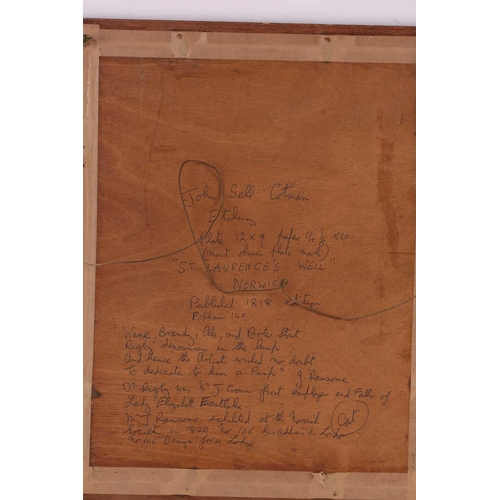 John Sell Cotman
Etching
Plate 12 x 9 paper 14 ½ x 20
(most obvious plate mark)
"ST LAURENCE'S WELL"
NORWICH
Published 1818 edition
Popham 140
Wine, Brandy, Ale, and Porter
Rigby denounces in the Pump
And hence the Artist's no doubt
To dedicate to him a Pump" J Ransome
Dr Rigby was Mr J first employer and Father of
Lady Elizabeth Eastlake
Mr J Ransome exhibited at the Norwich
Society in 1820 No 106 his address is London
No 106 "Design for a Lodge
Cat